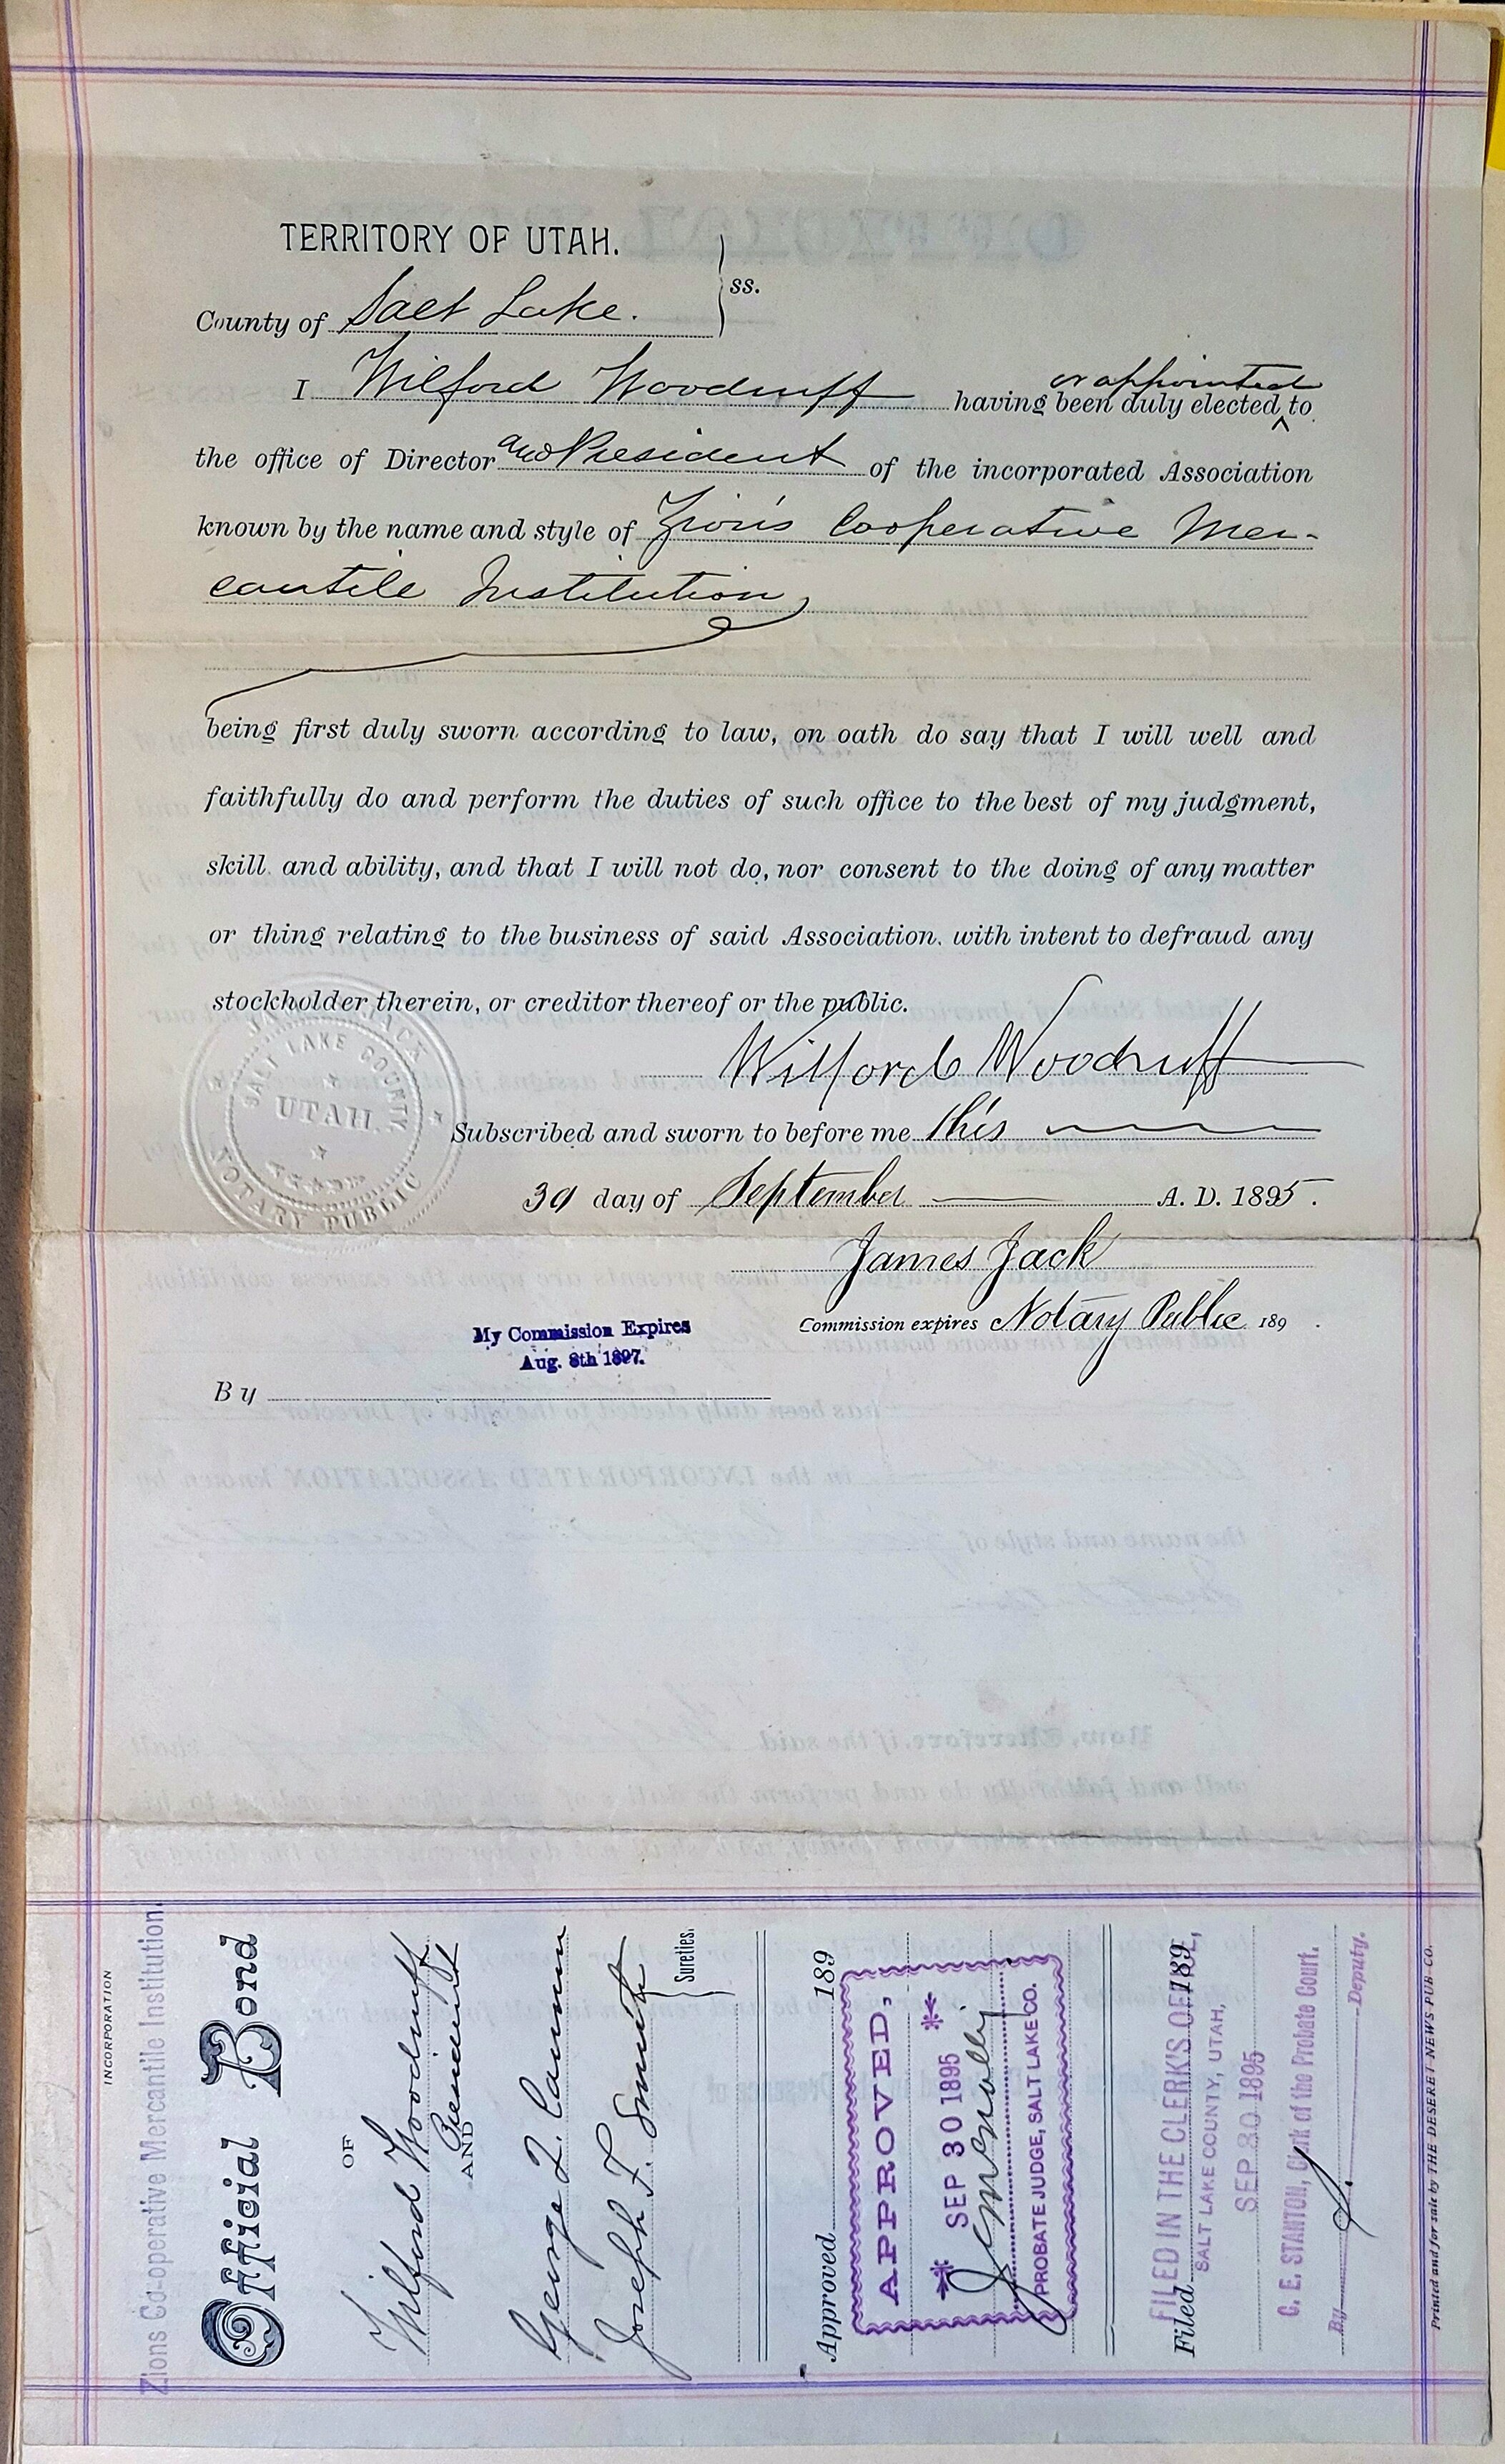 TERRITORY OF UTAH.
ss.
County of Salt Lake.
or appointed
I Wilford Woodruff having been duly elected ^ to
the office of Director and President of the incorporated Association
known by the name and style of Zion's Cooperative Mer-
cantile Institution,
being first duly sworn according to law, on oath do say that I will well and
faithfully do and perform the duties of such office to the best of my judgment,
skill and ability, and that I will not do, nor consent to the doing of any matter
or thing relating to the business of said Association. with intent to defraud any
stockholder therein, or creditor thereof or the public.
Wilford Woodruff
JACK
SALT LAKE COUNTY
UTAH.
NOTARY PUBLIC
Subscribed and sworn to before me this
30 day of September A. D. 1895.
James Jack
Commission expires Notary Public 189 .
My Commission Expires
Aug. 8th 1897.
By
INCORPORATION
Zions Co-operative Mercantile Institution.
Official Bond
OF
Wilford Woodruff
President
AND
George Q. Cannon
Joseph F. Smith
Sureties.
Approved 189
APPROVED,
SEP 30 1895
PROBATE JUDGE, SALT LAKE CO.
FILED IN THE CLERK'S OFFICE,
Filed 189
SALT LAKE COUNTY, UTAH,
SEP 30 1895
C. E. STANTON, Clerk of the Probate Court.
By Deputy.
Printed and for sale by THE DESERET NEWS PUB. CO.